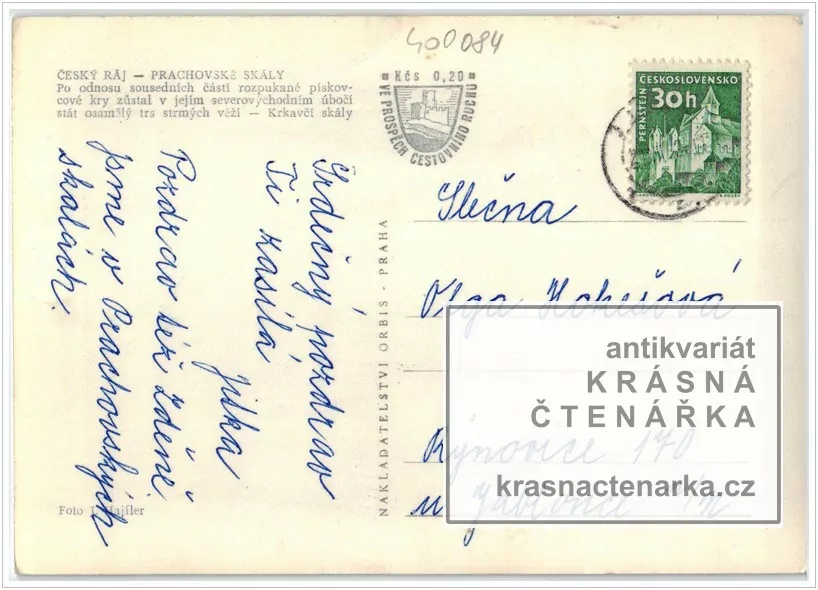 400084
ČESKÝ RÁJ — PRACHOVSKÉ SKÁLY
Po odnosu sousedních částí rozpukané pískov-
cové kry zůstal v jejím severovýchodním úbočí
stát osamělý trs strmých věží — Krkavčí skály
Kčs 0,20
VE PROSPĚCH CESTOVNÍHO RUCHU
ČESKOSLOVENSKO
30h
PERNŠTEJN
Srdečný pozdrav
Ti zasílá
Jitka
Pozdrav též Zdeně
jsme v Prachovských
skalách.
NAKLADATELSTVÍ ORBIS - PRAHA
Slečna
Olga
Rýnovice 170
u Jablonce n/N
Foto J. Hajšler
antikvariát
KRÁSNÁ
ČTENÁŘKA
krasnactenarka.cz